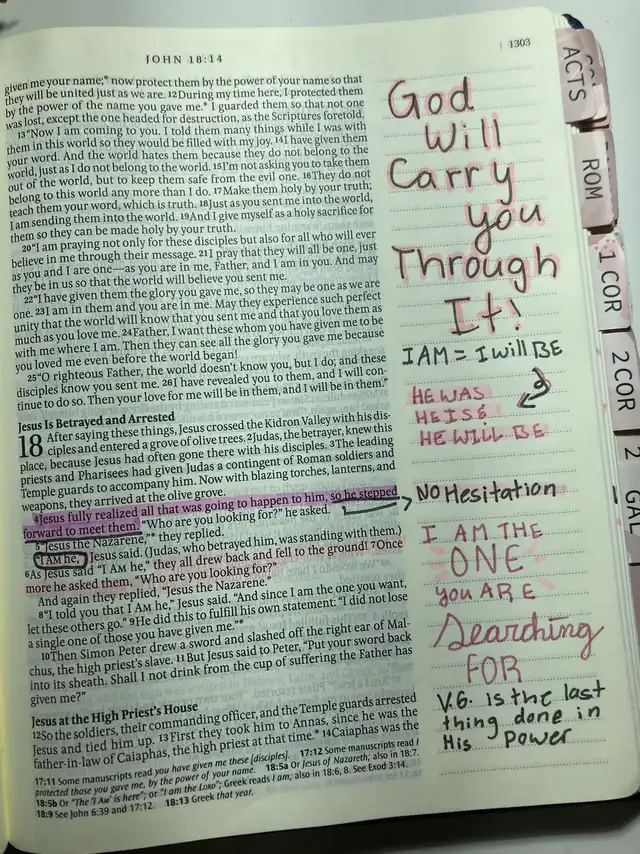 JOHN 18:14
1303
given me your name;* now protect them by the power of your name so that
they will be united just as we are. 12During my time here, I protected them
by the power of the name you gave me.* I guarded them so that not one
was lost, except the one headed for destruction, as the Scriptures foretold.
13"Now I am coming to you. I told them many things while I was with
them in this world so they would be filled with my joy. 14I have given them
your word. And the world hates them because they do not belong to the
world, just as I do not belong to the world. 15I'm not asking you to take them
out of the world, but to keep them safe from the evil one. 16They do not
belong to this world any more than I do. 17Make them holy by your truth;
teach them your word, which is truth. 18Just as you sent me into the world,
I am sending them into the world. 19And I give myself as a holy sacrifice for
them so they can be made holy by your truth.
20"I am praying not only for these disciples but also for all who will ever
believe in me through their message. 21I pray that they will all be one, just
as you and I are one—as you are in me, Father, and I am in you. And may
they be in us so that the world will believe you sent me.
22"I have given them the glory you gave me, so they may be one as we are
one. 23I am in them and you are in me. May they experience such perfect
unity that the world will know that you sent me and that you love them as
much as you love me. 24Father, I want these whom you have given me to be
with me where I am. Then they can see all the glory you gave me because
you loved me even before the world began!
25"O righteous Father, the world doesn't know you, but I do; and these
disciples know you sent me. 26I have revealed you to them, and I will con-
tinue to do so. Then your love for me will be in them, and I will be in them."
Jesus Is Betrayed and Arrested
18 After saying these things, Jesus crossed the Kidron Valley with his dis-
ciples and entered a grove of olive trees. 2Judas, the betrayer, knew this
place, because Jesus had often gone there with his disciples. 3The leading
priests and Pharisees had given Judas a contingent of Roman soldiers and
Temple guards to accompany him. Now with blazing torches, lanterns, and
weapons, they arrived at the olive grove.
4Jesus fully realized all that was going to happen to him, so he stepped
forward to meet them. "Who are you looking for?" he asked.
5"Jesus the Nazarene,"* they replied.
"I AM he," Jesus said. (Judas, who betrayed him, was standing with them.)
6As Jesus said "I AM he," they all drew back and fell to the ground! 7Once
more he asked them, "Who are you looking for?"
And again they replied, "Jesus the Nazarene."
8"I told you that I AM he," Jesus said. "And since I am the one you want,
let these others go." 9He did this to fulfill his own statement: "I did not lose
a single one of those you have given me."*
10Then Simon Peter drew a sword and slashed off the right ear of Mal-
chus, the high priest's slave. 11But Jesus said to Peter, "Put your sword back
into its sheath. Shall I not drink from the cup of suffering the Father has
given me?"
Jesus at the High Priest's House
12So the soldiers, their commanding officer, and the Temple guards arrested
Jesus and tied him up. 13First they took him to Annas, since he was the
father-in-law of Caiaphas, the high priest at that time.* 14Caiaphas was the
17:11 Some manuscripts read you have given me these [disciples]. 17:12 Some manuscripts read I
protected those you gave me, by the power of your name. 18:5a Or Jesus of Nazareth; also in 18:7.
18:5b Or "The 'I AM' is here"; or "I am the LORD"; Greek reads I am; also in 18:6, 8. See Exod 3:14.
18:9 See John 6:39 and 17:12. 18:13 Greek that year.
God
Will
Carry
you
Through
It!
I AM = I will BE
HE WAS
HE IS &
HE WILL BE
NO Hesitation
I AM THE
ONE
you ARE
Searching
FOR
V.6. is the last
thing done in
His power
ACTS
ROM
1 COR
2 COR
GAL